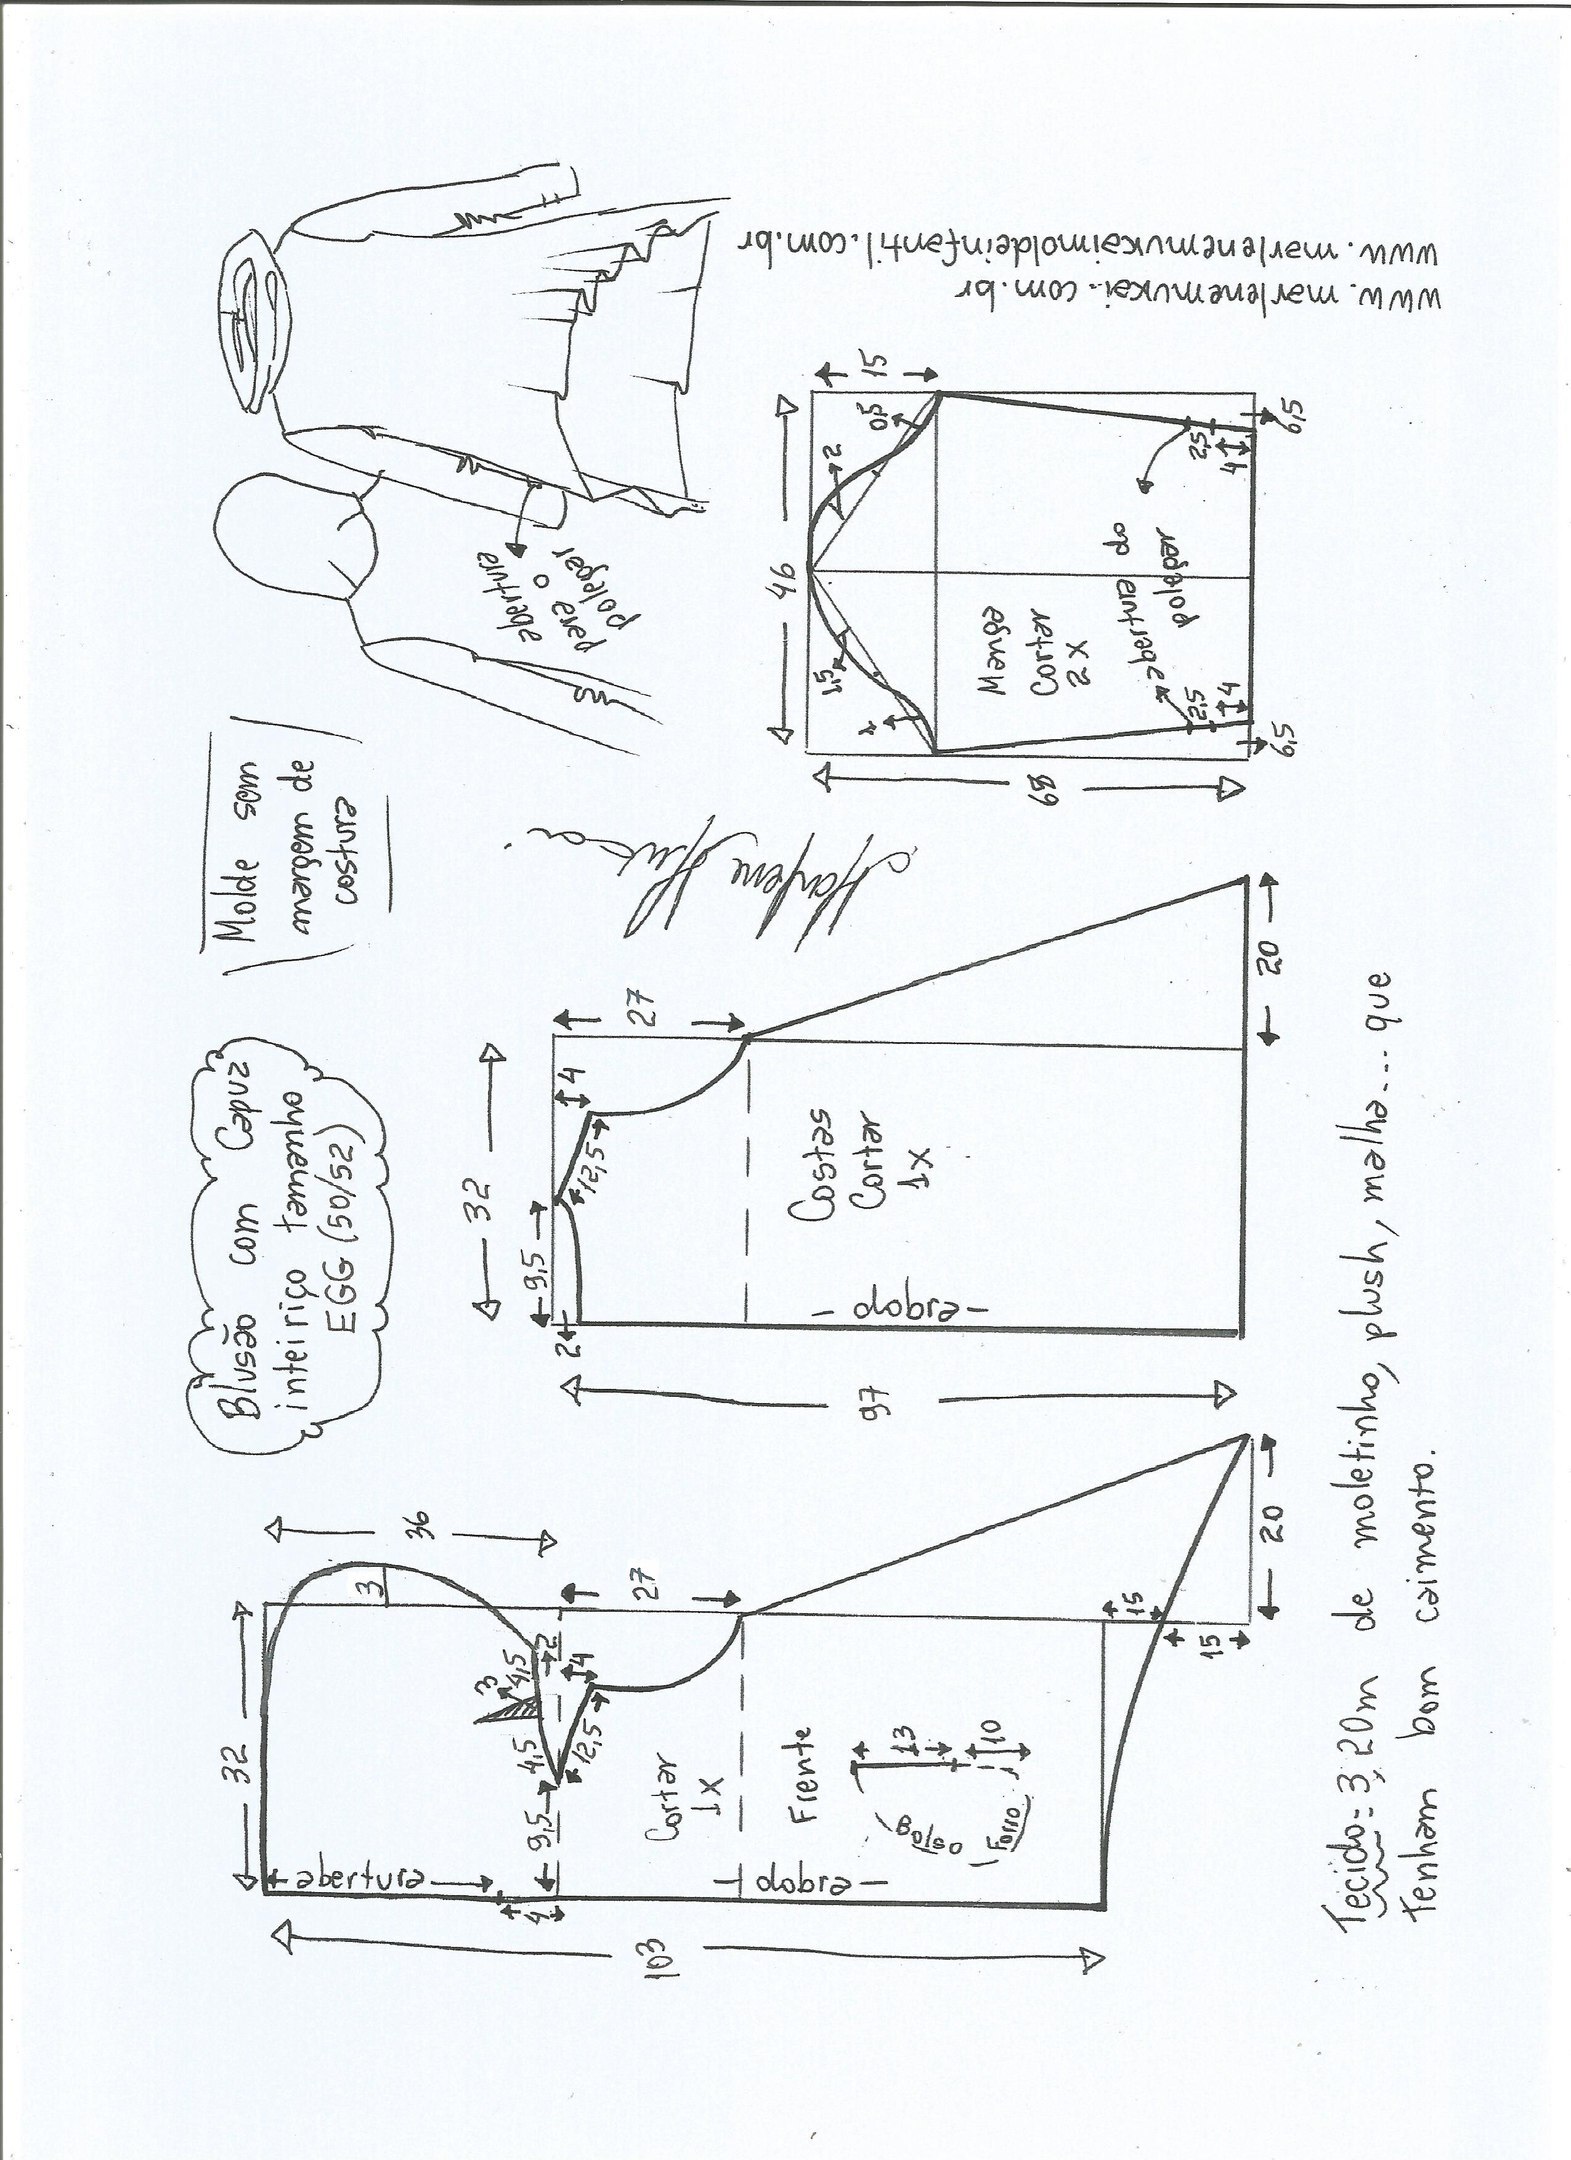 Blusão com Capuz
inteiriço tamanho
EGG (50/52)
Molde sem
margem de
costura
abertura
para o
polegar
32
36
3
abertura
4
9,5
4,5
3
4,5
2
4
12,5
27
Cortar
1x
Frente
Bolso
Forro
13
10
dobra
103
15
15
20
32
9,5
2
12,5
4
27
Costas
Cortar
1x
dobra
97
20
Marlene Mukai
46
15
1,5
1
2
0,5
Manga
Cortar
2x
abertura do
polegar
2,5
4
6,5
2,5
4
6,5
www.marlenemukai.com.br
www.marlenemukaimoldeinfantil.com.br
Tecido: 3,20m de moletinho, plush, malha... que
tenham bom caimento.